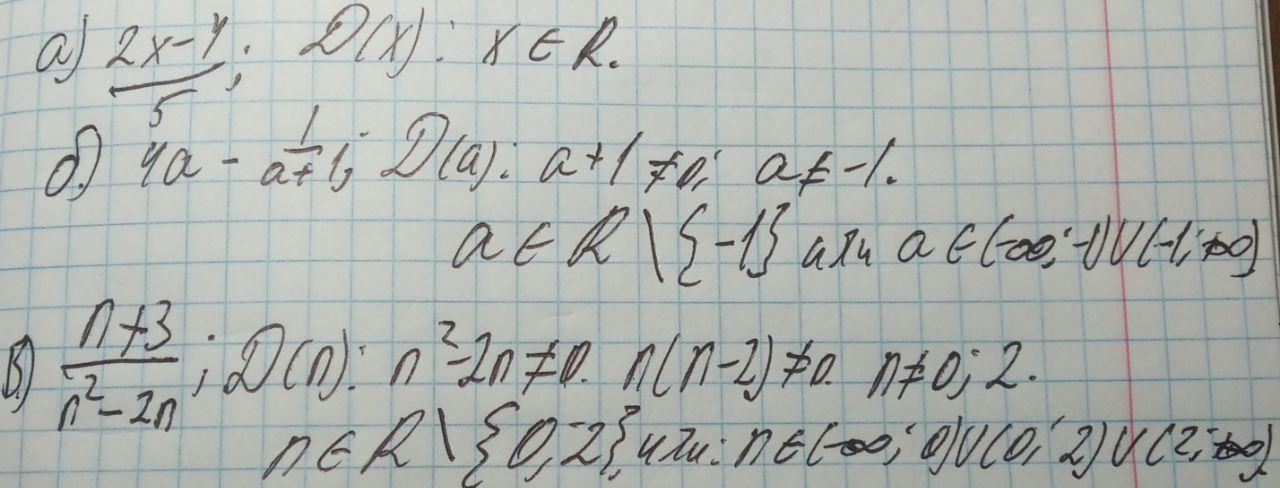 а) (2x-4)/5; D(x): x ∈ R.
б.) 4a - 1/(a+1); D(a): a+1≠0; a≠-1.
a ∈ R \ {-1} или a ∈ (-∞; -1)∪(-1; +∞)
в.) (n+3)/(n²-2n); D(n): n²-2n≠0. n(n-2)≠0. n≠0; 2.
n ∈ R \ {0; 2}, или: n ∈ (-∞; 0)∪(0; 2)∪(2; +∞)